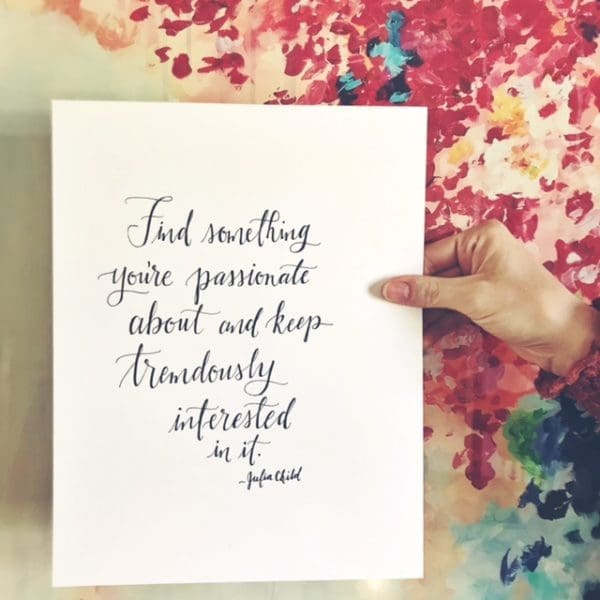 Find something
you're passionate
about and keep
tremdously
interested
in it.
~Julia Child